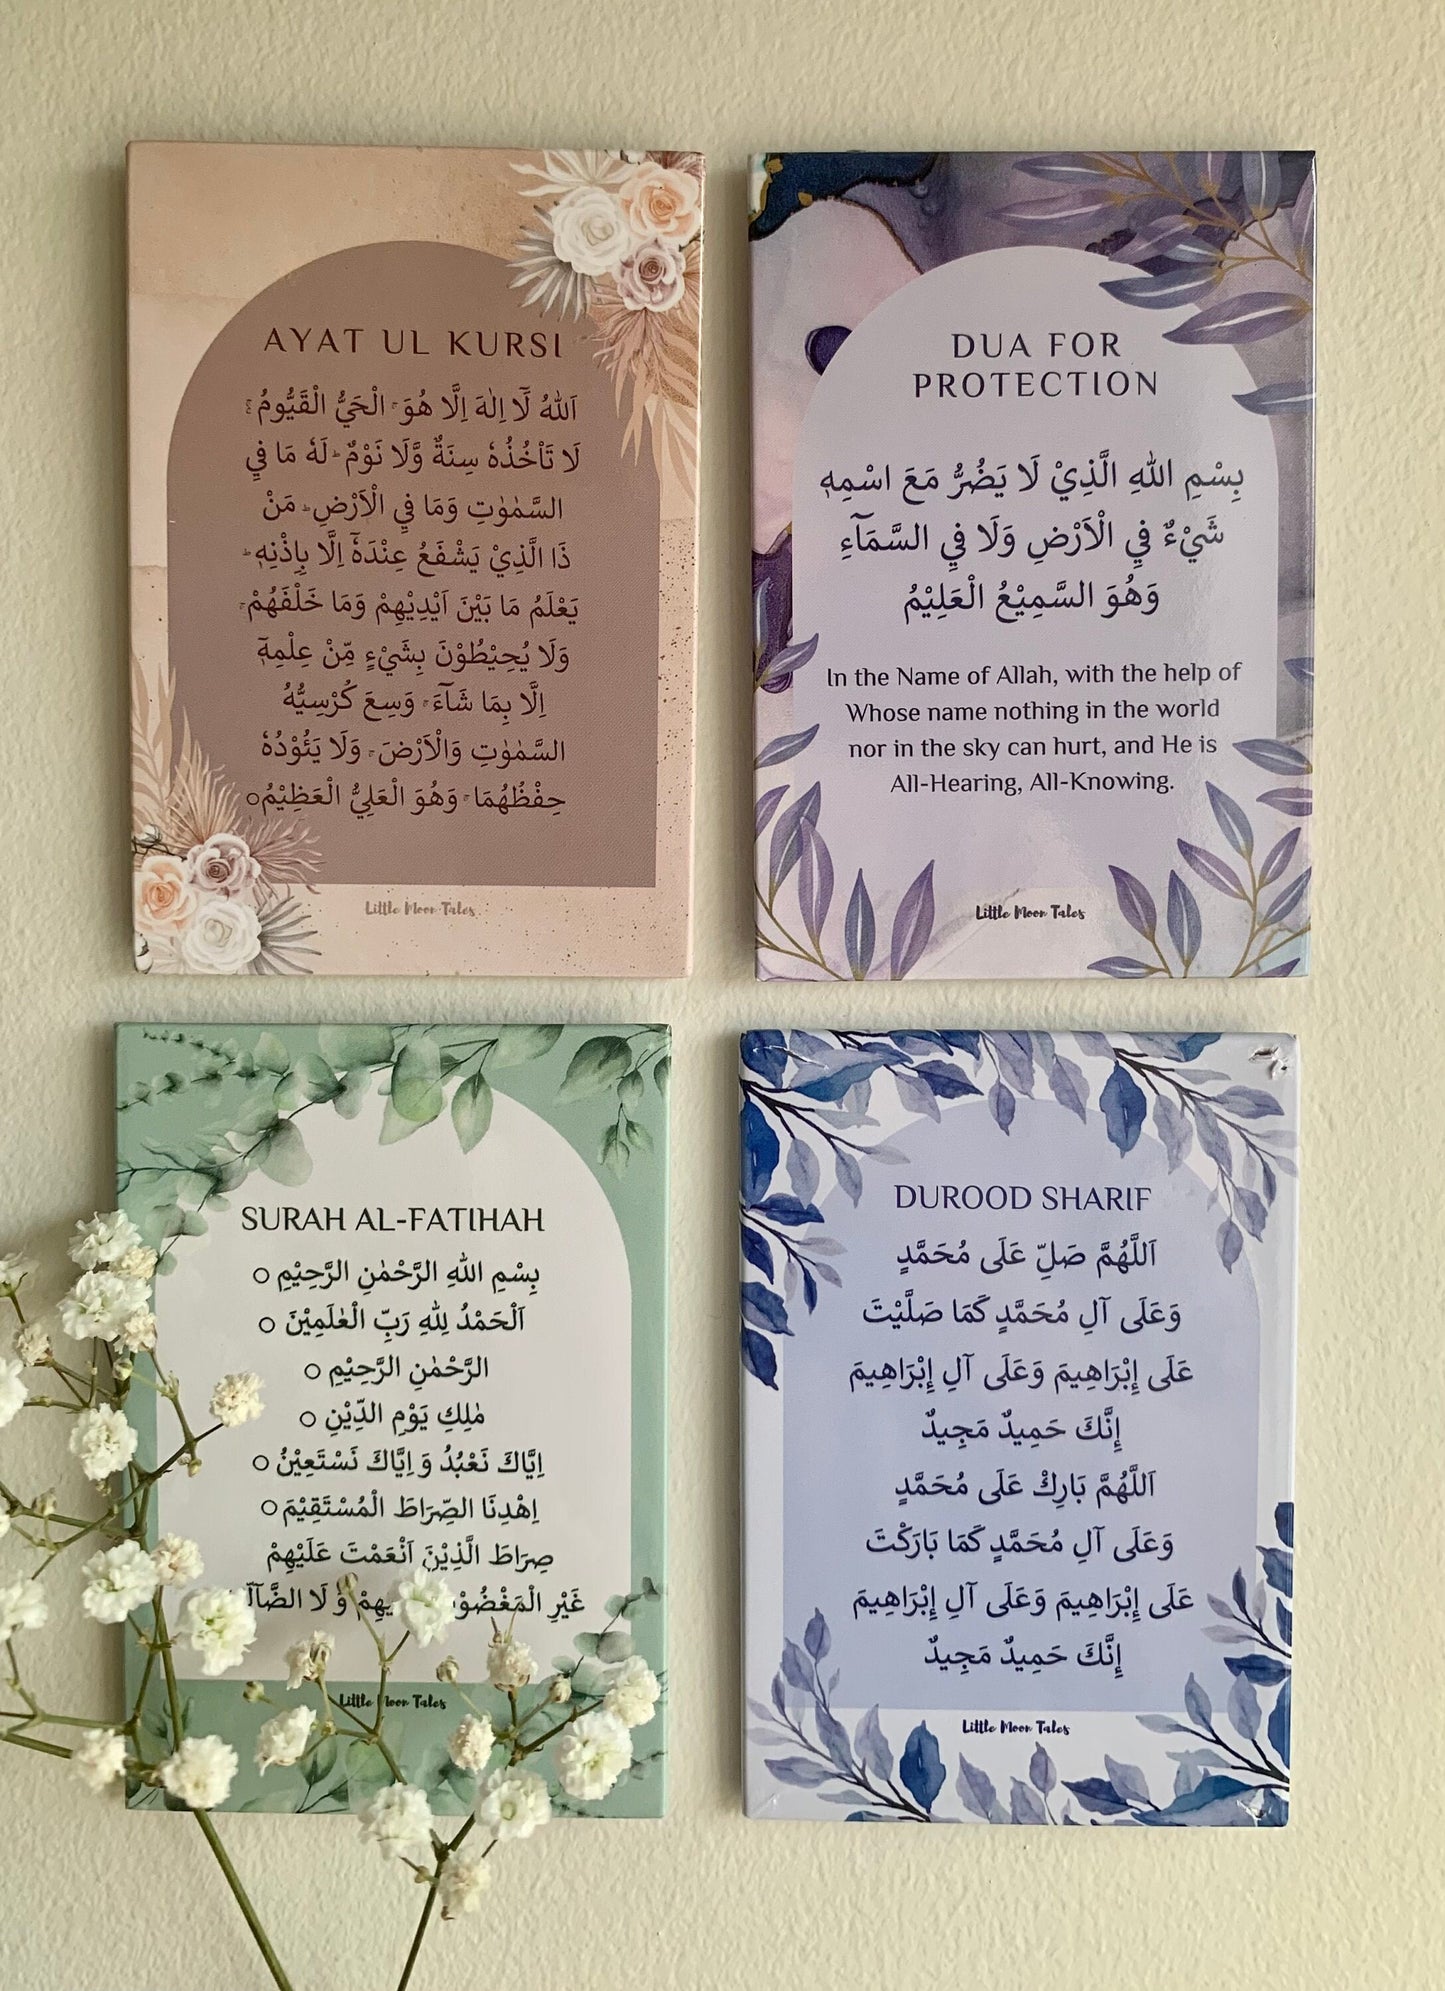 AYAT UL KURSI
اَللّٰهُ لَآ اِلٰهَ اِلَّا هُوَ ۚ الْحَيُّ الْقَيُّومُ ۚ
لَا تَاْخُذُهٗ سِنَةٌ وَّلَا نَوْمٌ ؕ لَهٗ مَا فِي
السَّمٰوٰتِ وَمَا فِي الْاَرْضِ ؕ مَنْ
ذَا الَّذِيْ يَشْفَعُ عِنْدَهٗٓ اِلَّا بِاِذْنِهٖ ؕ
يَعْلَمُ مَا بَيْنَ اَيْدِيْهِمْ وَمَا خَلْفَهُمْ ۚ
وَلَا يُحِيْطُوْنَ بِشَيْءٍ مِّنْ عِلْمِهٖٓ
اِلَّا بِمَا شَآءَ ۚ وَسِعَ كُرْسِيُّهُ
السَّمٰوٰتِ وَالْاَرْضَ ۚ وَلَا يَئُوْدُهٗ
حِفْظُهُمَا ۚ وَهُوَ الْعَلِيُّ الْعَظِيْمُ○
Little Moon Tales
DUA FOR
PROTECTION
بِسْمِ اللّٰهِ الَّذِيْ لَا يَضُرُّ مَعَ اسْمِهٖ
شَيْءٌ فِي الْاَرْضِ وَلَا فِي السَّمَآءِ
وَهُوَ السَّمِيْعُ الْعَلِيْمُ
In the Name of Allah, with the help of
Whose name nothing in the world
nor in the sky can hurt, and He is
All-Hearing, All-Knowing.
Little Moon Tales
SURAH AL-FATIHAH
بِسْمِ اللّٰهِ الرَّحْمٰنِ الرَّحِيْمِ ○
اَلْحَمْدُ لِلّٰهِ رَبِّ الْعٰلَمِيْنَ ○
الرَّحْمٰنِ الرَّحِيْمِ ○
مٰلِكِ يَوْمِ الدِّيْنِ ○
اِيَّاكَ نَعْبُدُ وَ اِيَّاكَ نَسْتَعِيْنُ ○
اِهْدِنَا الصِّرَاطَ الْمُسْتَقِيْمَ ○
صِرَاطَ الَّذِيْنَ اَنْعَمْتَ عَلَيْهِمْ
غَيْرِ وَ لَا
Little Moon Tales
DUROOD SHARIF
اَللَّهُمَّ صَلِّ عَلَى مُحَمَّدٍ
وَعَلَى آلِ مُحَمَّدٍ كَمَا صَلَّيْتَ
عَلَى إِبْرَاهِيمَ وَعَلَى آلِ إِبْرَاهِيمَ
إِنَّكَ حَمِيدٌ مَجِيدٌ
اَللَّهُمَّ بَارِكْ عَلَى مُحَمَّدٍ
وَعَلَى آلِ مُحَمَّدٍ كَمَا بَارَكْتَ
عَلَى إِبْرَاهِيمَ وَعَلَى آلِ إِبْرَاهِيمَ
إِنَّكَ حَمِيدٌ مَجِيدٌ
Little Moon Tales